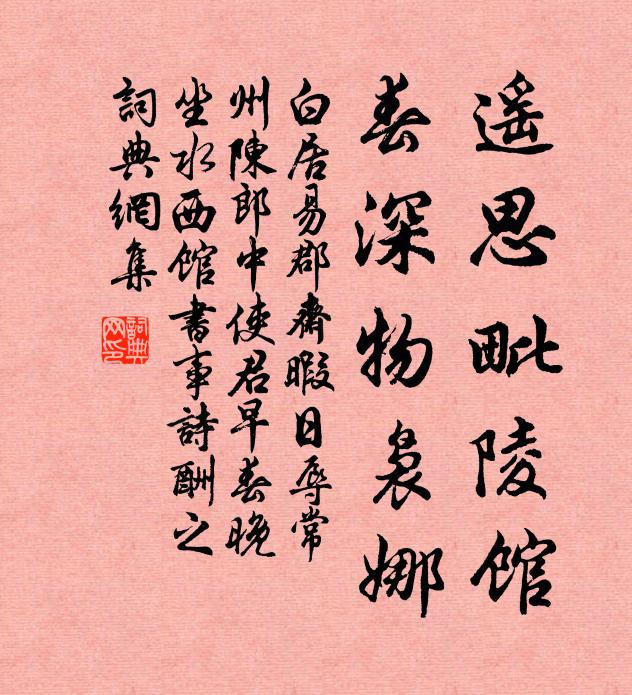 遥思毗陵馆
春深物袅娜
白居易郡齋暇日辱常
州陳郎中使君早春晚
坐水西館書事詩酬之
詞典網集
詞典网印